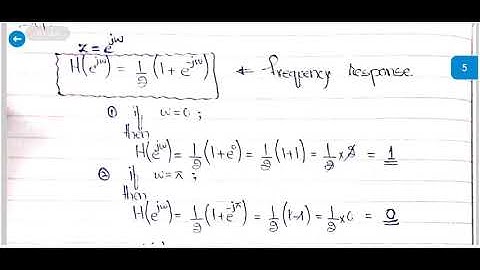 z = e^{jω}
H(e^{jω}) = 1/2 (1 + e^{-jω}) ← frequency Response
5
① if ω = 0 ;
then
H(e^{jω}) = 1/2 (1 + e^0) = 1/2 (1+1) = 1/2 × 2 = 1
② if ω = π ;
then
H(e^{jω}) = 1/2 (1 + e^{-jπ}) = 1/2 (1-1) = 1/2 × 0 = 0